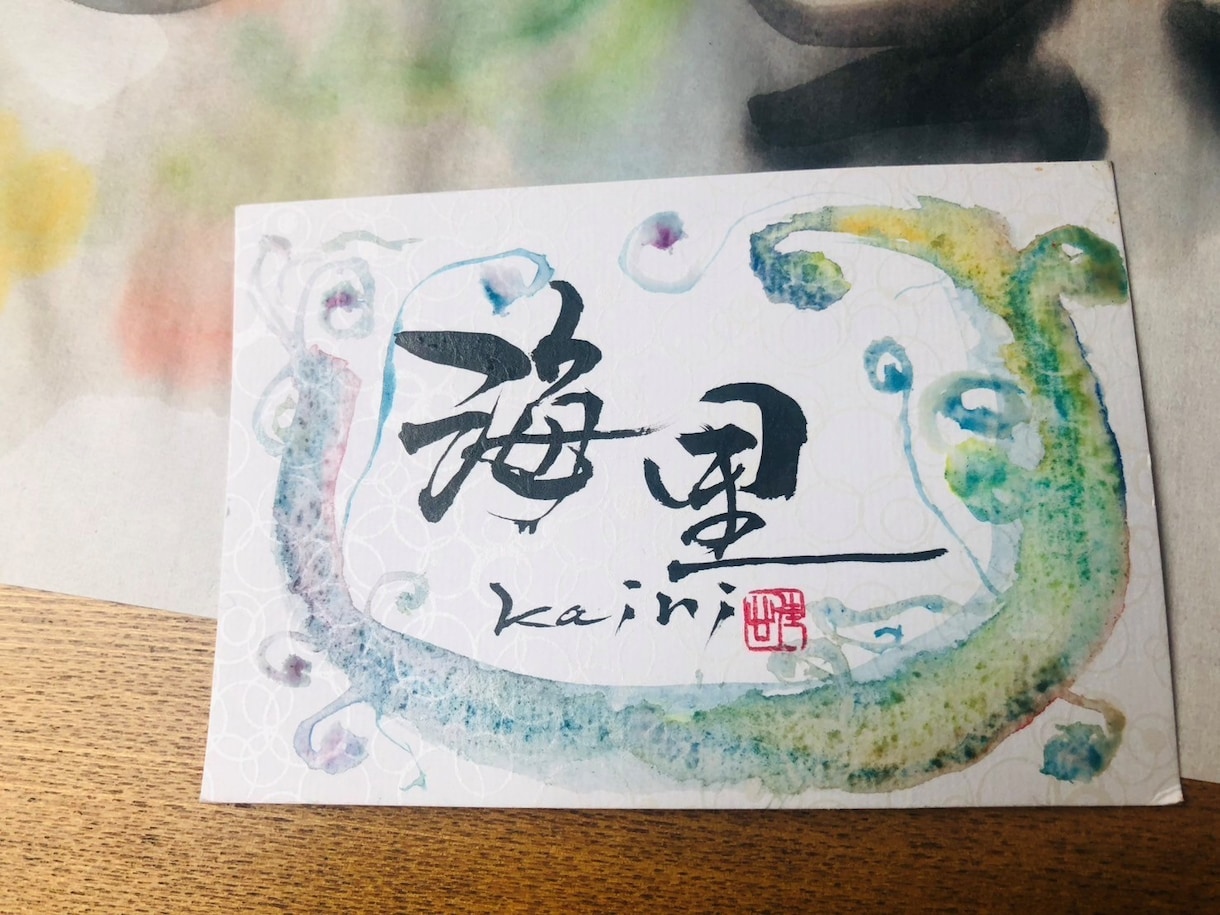 海里
kairi